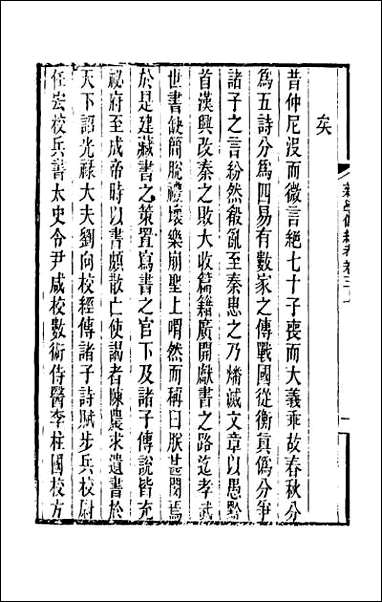 新學偽經考卷三
一
矣
昔仲尼没而微言絕七十子喪而大義乖故春秋分
為五詩分為四易有數家之傳戰國從衡真偽分爭
諸子之言紛然殽亂至秦患之乃燔滅文章以愚黔
首漢興改秦之敗大收篇籍廣開獻書之路迄孝武
世書缺簡脫禮壞樂崩聖上喟然而稱曰朕甚閔焉
於是建藏書之策置寫書之官下及諸子傳說皆充
祕府至成帝時以書頗散亡使謁者陳農求遺書於
天下詔光祿大夫劉向校經傳諸子詩賦步兵校尉
任宏校兵書太史令尹咸校數術侍醫李柱國校方